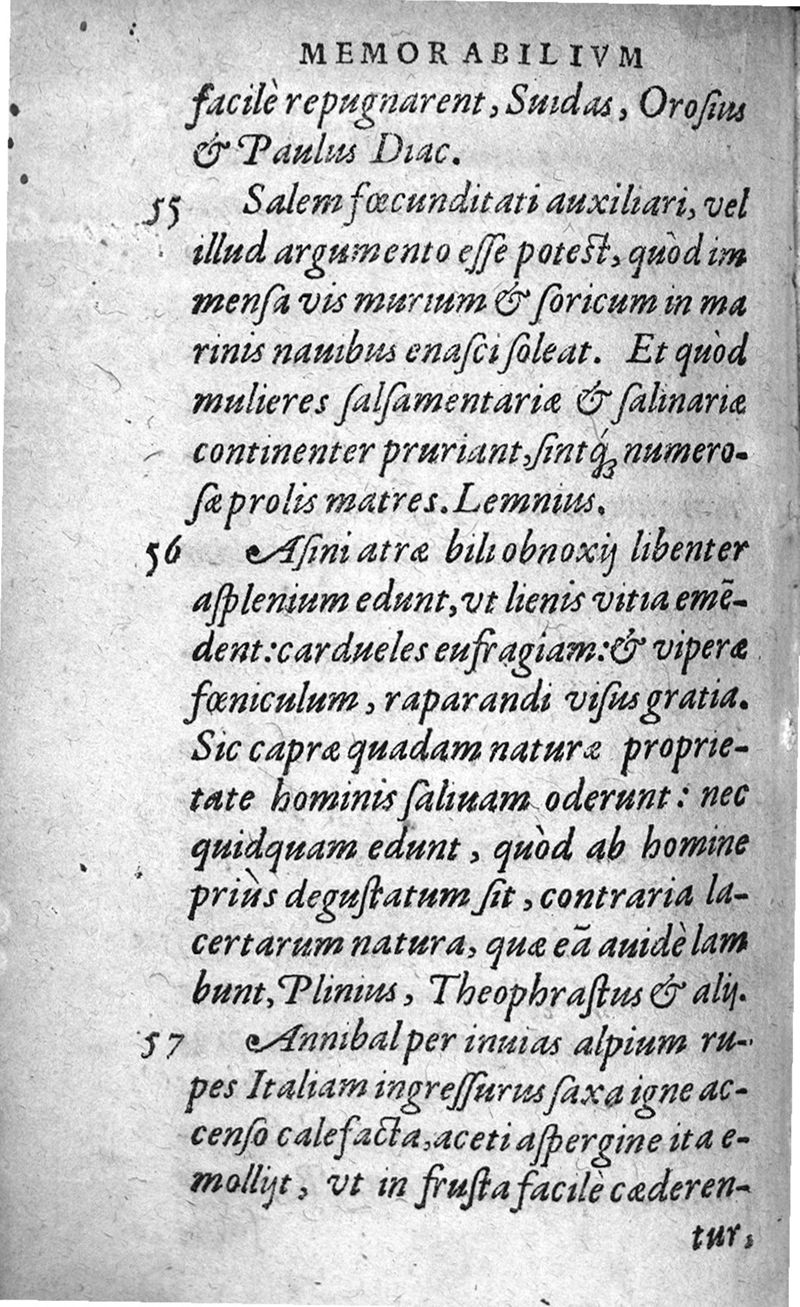 MEMORABILIVM
facilè repugnarent, Suidas, Orosius
& Paulus Diac.
55 Salem fœcunditati auxiliari, vel
illud argumento esse potest, quòd im
mensa vis murium & soricum in ma
rinis nauibus enasci soleat. Et quòd
mulieres salsamentariæ & salinariæ
continenter pruriant, sintq́; numero-
sæ prolis matres. Lemnius.
56 Asini atræ bili obnoxij libenter
asplenium edunt, vt lienis vitia emē-
dent: cardueles eufragiam: & viperæ
fœniculum, raparandi visus gratia.
Sic capræ quadam naturæ proprie-
tate hominis saliuam oderunt: nec
quidquam edunt, quòd ab homine
priùs degustatum sit, contraria la-
certarum natura, quæ eā auidè lam
bunt, Plinius, Theophrastus & alij.
57 Annibal per inuias alpium ru-
pes Italiam ingressurus saxa igne ac-
censo calefacta, aceti aspergine ita e-
mollijt, vt in frusta facilè cæderen-
tur,